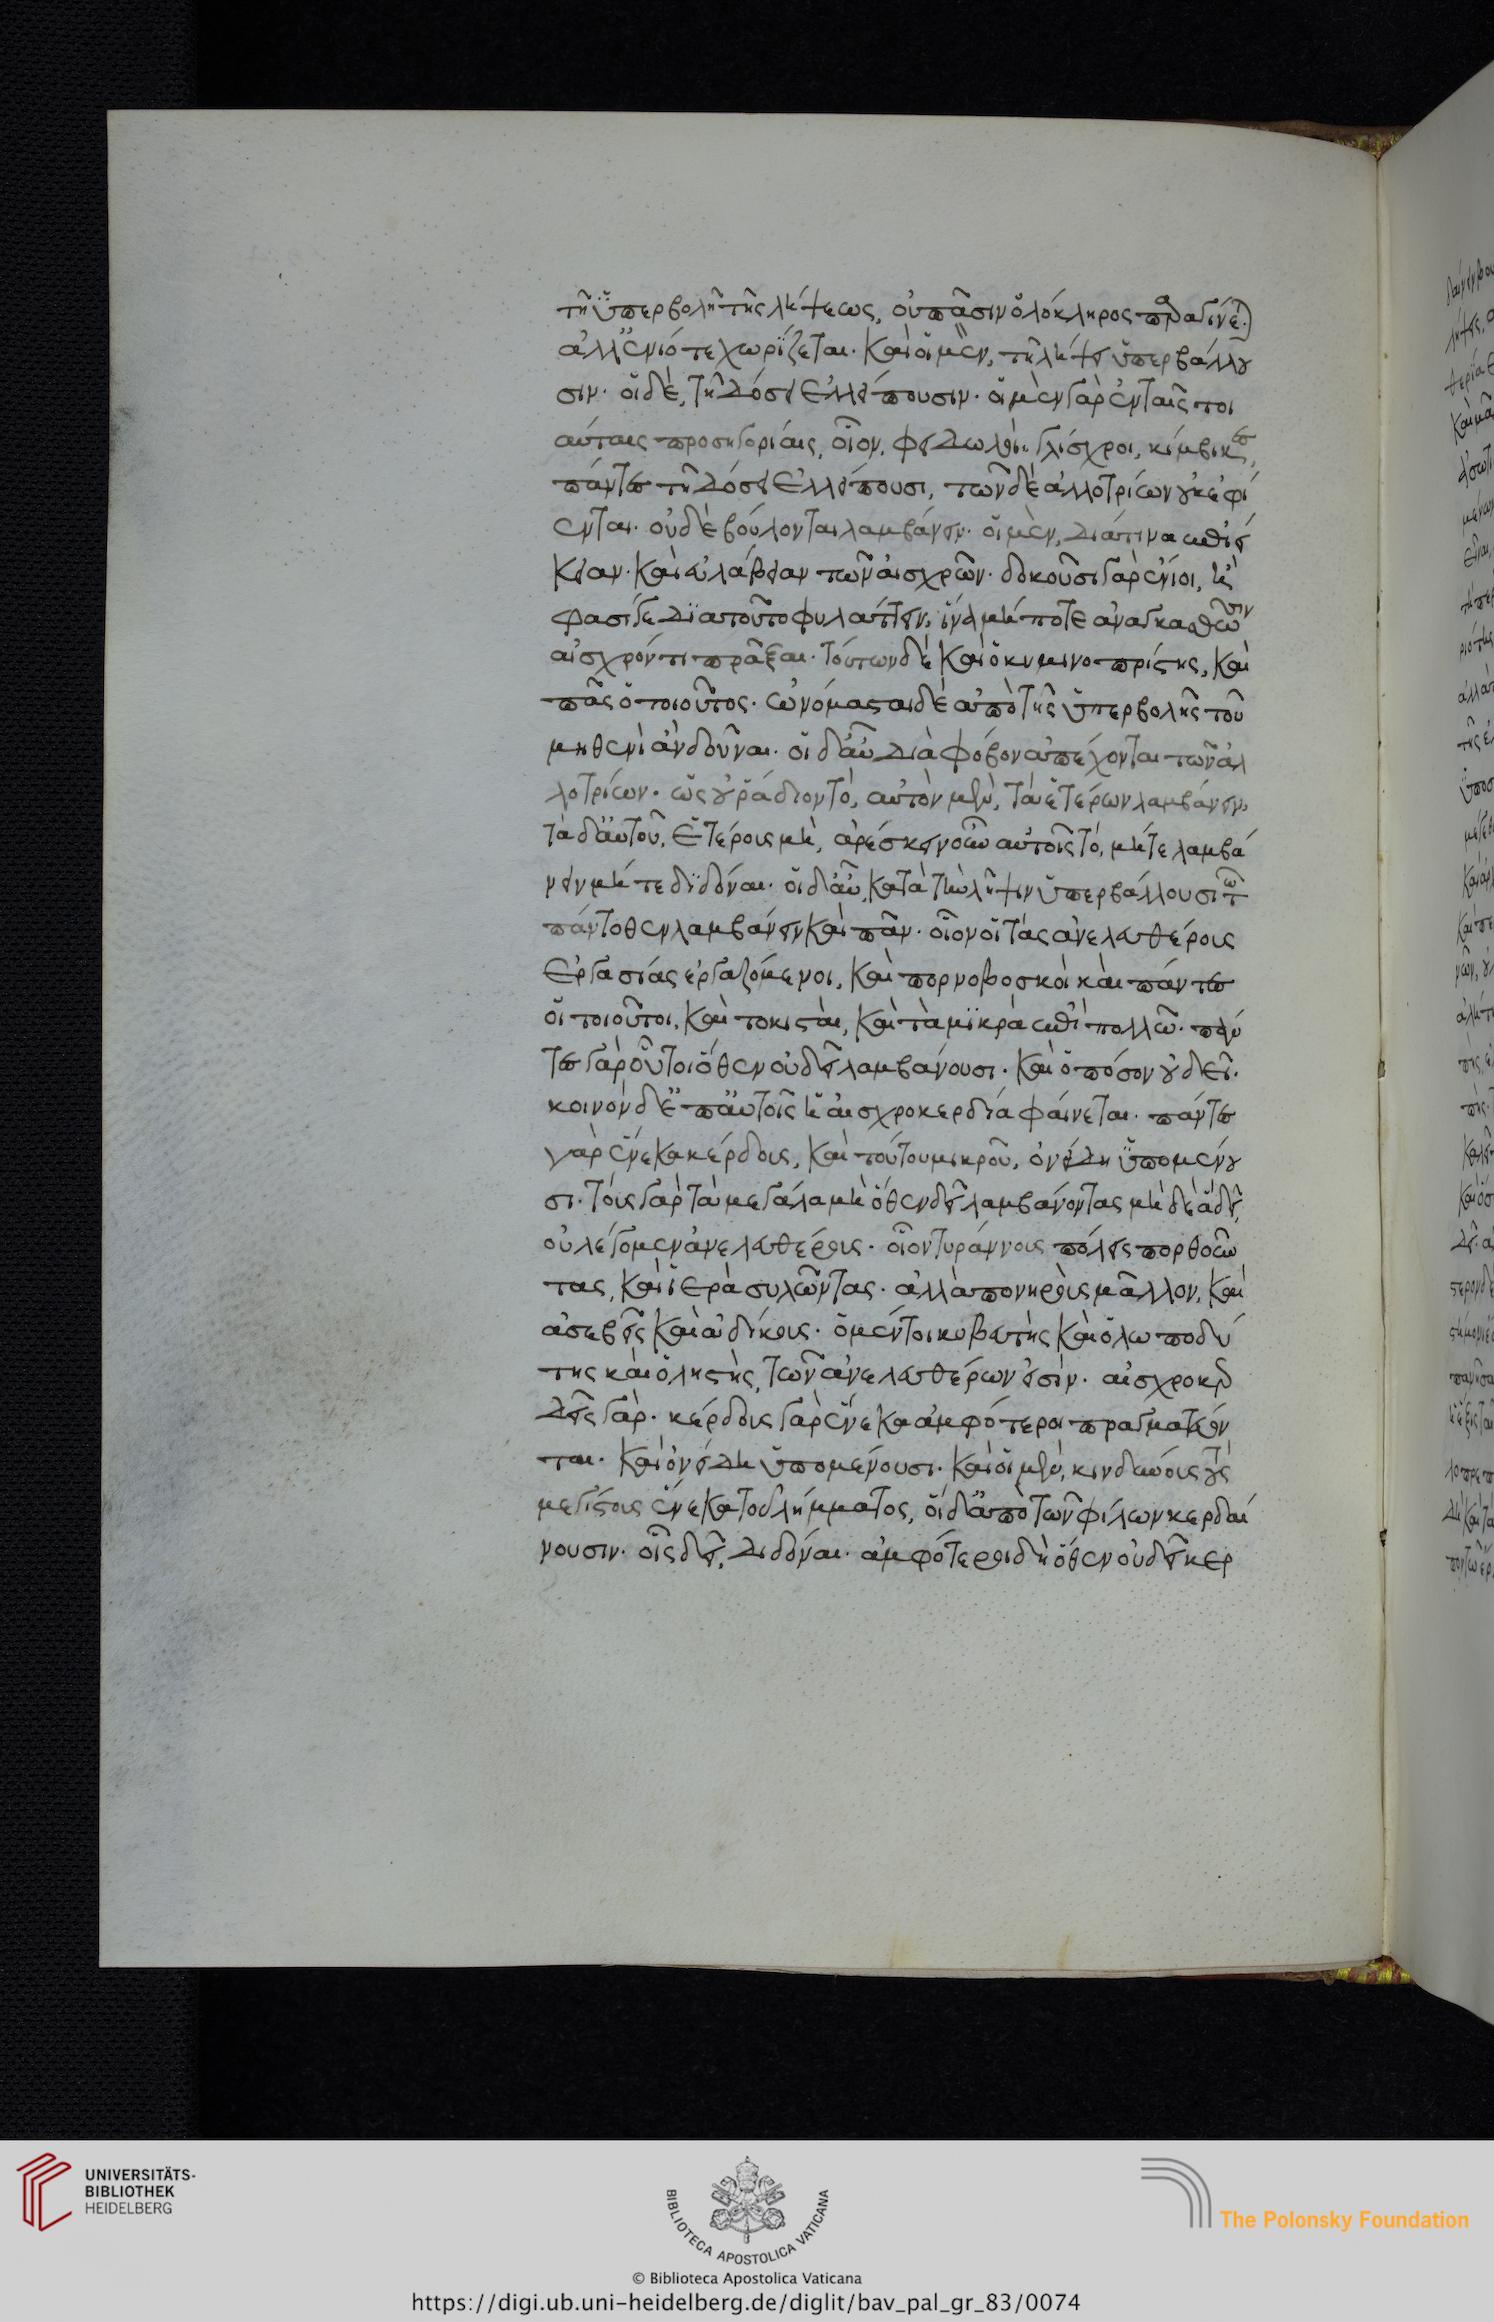 τῇ ὑπερβολῇ τῆς λήψεως, οὐ πᾶσιν ὁλόκληρος παραγίνεται
ἀλλ' ἐνιότε χωρίζεται. καὶ οἱ μὲν, τῇ λήψει ὑπερβάλλου
σιν. οἱ δὲ, τῇ δόσει ἐλλείπουσιν. οἱ μὲν γὰρ ἐν ταῖς τοι
αύταις προσηγορίαις, οἷον, φειδωλοὶ, γλίσχροι, κίμβικες,
πάντες τῇ δόσει ἐλλείπουσι, τῶν δὲ ἀλλοτρίων οὐκ ἐφί
ενται. οὐδὲ βούλονται λαμβάνειν. οἱ μὲν, διά τινα ἐπιεί
κειαν. καὶ εὐλάβειαν τῶν αἰσχρῶν. δοκοῦσι γὰρ ἔνιοι, ἢ
φασί γε διατοῦτο φυλάττειν, ἵνα μή ποτε ἀναγκασθῶσιν
αἰσχρόν τι πρᾶξαι. τούτων δὲ καὶ ὁ κυμινοπρίστης, καὶ
πᾶς ὁ τοιοῦτος. ὠνόμασται δὲ ἀπὸ τῆς ὑπερβολῆς τοῦ
μηθενὶ ἂν δοῦναι. οἱ δ' αὖ διὰ φόβον ἀπέχονται τῶν ἀλ
λοτρίων. ὡς οὐ ῥᾴδιον τὸ, αὐτὸν μὲν, τὰ ἑτέρων λαμβάνειν,
τὰ δ' αὐτοῦ, ἑτέρους μὴ, ἀρέσκειν οὖν αὐτοῖς τὸ, μήτε λαμβά
νειν μήτε διδόναι. οἱ δ' αὖ, κατὰ τὴν λῆψιν ὑπερβάλλουσι τῶ
πάντοθεν λαμβάνειν καὶ πᾶν. οἷον οἱ τὰς ἀνελευθέρους
ἐργασίας ἐργαζόμενοι, καὶ πορνοβοσκοὶ καὶ πάντες
οἱ τοιοῦτοι. καὶ τοκισταὶ, καὶ τὰ μικρὰ ἐπὶ πολλῶ. πάν
τες γὰρ οὗτοι ὅθεν οὐ δεῖ λαμβάνουσι. καὶ ὁπόσον οὐ δεῖ.
κοινὸν δ' ἐπ' αὐτοῖς ἡ αἰσχροκερδία φαίνεται. πάντες
γὰρ ἕνεκα κέρδους, καὶ τούτου μικροῦ, ὀνείδη ὑπομένου
σι. τοὺς γὰρ τὰ μεγάλα μὴ ὅθεν δεῖ λαμβάνοντας μηδὲ ἃ δεῖ,
οὐ λέγομεν ἀνελευθέρους. οἷον τυράννους πόλεις πορθοῦν
τας, καὶ ἱερὰ συλῶντας. ἀλλὰ πονηροὺς μᾶλλον, καὶ
ἀσεβεῖς καὶ ἀδίκους. ὁ μέντοι κυβευτὴς καὶ ὁ λωποδύ
της καὶ ὁ ληστὴς, τῶν ἀνελευθέρων εἰσίν. αἰσχροκερ
δεῖς γάρ. κέρδους γὰρ ἕνεκα ἀμφότεροι πραγματεύον
ται. καὶ ὀνείδη ὑπομένουσι. καὶ οἱ μὲν, κινδύνους τοὺς
μεγίστους ἕνεκα τοῦ λήμματος, οἱ δ' ἀπὸ τῶν φίλων κερδαί
νουσιν. οἷς δεῖ, διδόναι. ἀμφότεροι δὴ ὅθεν οὐ δεῖ κερ
UNIVERSITÄTS-
BIBLIOTHEK
HEIDELBERG
BIBLIOTECA APOSTOLICA VATICANA
The Polonsky Foundation
© Biblioteca Apostolica Vaticana
https://digi.ub.uni-heidelberg.de/diglit/bav_pal_gr_83/0074